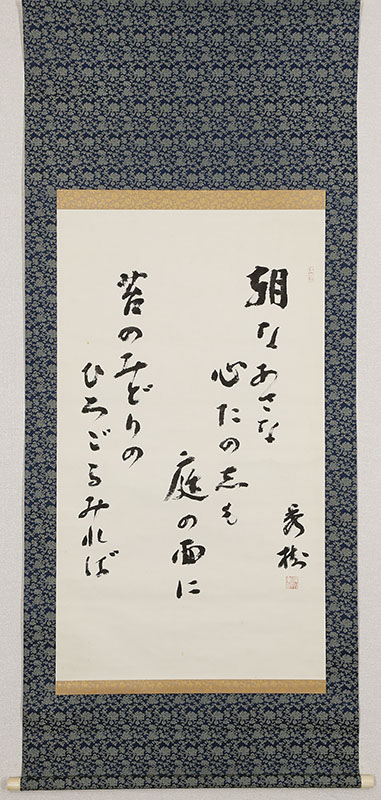 朝なあさな
心たの志も
庭の面に
苔のみどりの
ひろごるみれば
秀樹